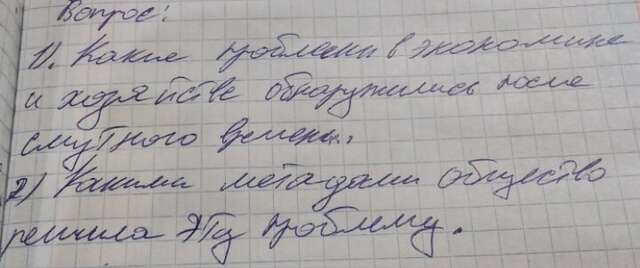 Вопрос:
1). Какие проблемы в экономике
и хозяйстве обнаружились после
смутного времени.
2) Какими метадами общество
решила эту проблему.